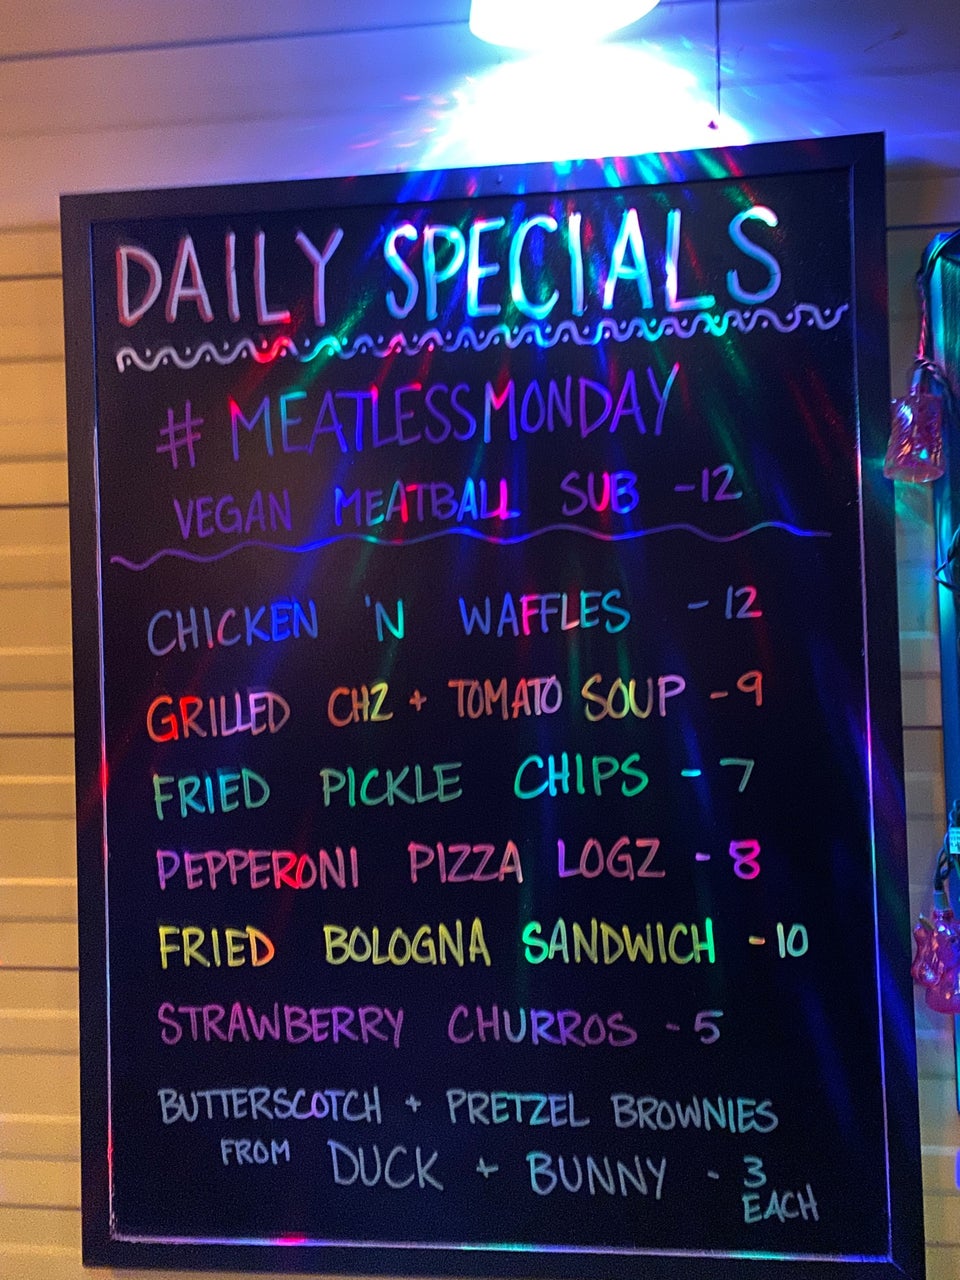 DAILY SPECIALS
#MEATLESSMONDAY
VEGAN MEATBALL SUB - 12
CHICKEN 'N WAFFLES - 12
GRILLED CHZ + TOMATO SOUP - 9
FRIED PICKLE CHIPS - 7
PEPPERONI PIZZA LOGZ - 8
FRIED BOLOGNA SANDWICH - 10
STRAWBERRY CHURROS - 5
BUTTERSCOTCH + PRETZEL BROWNIES
FROM DUCK + BUNNY - 3
EACH